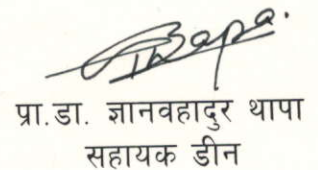 प्रा.डा. ज्ञानवहादुर थापा
सहायक डीन